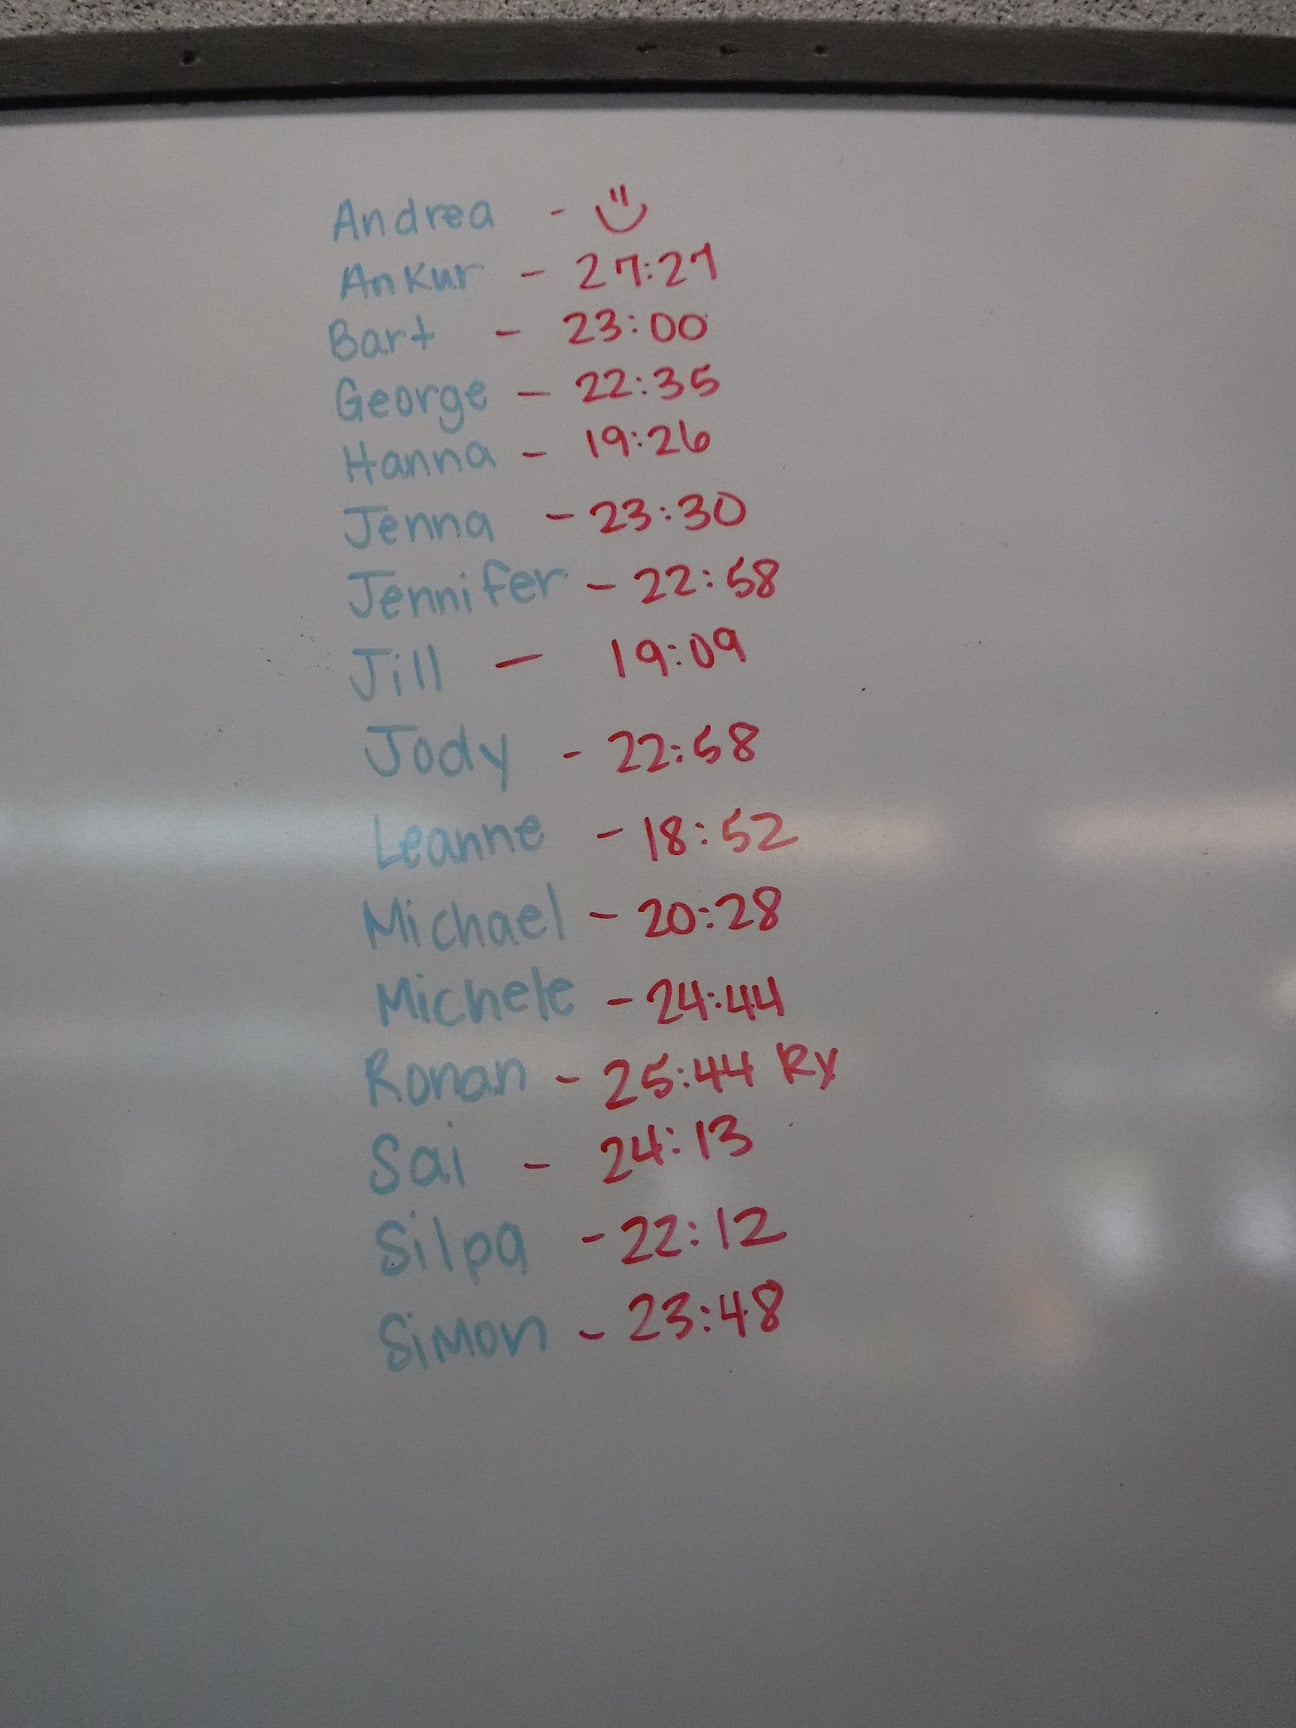 Andrea -
Ankur - 27:27
Bart - 23:00
George - 22:35
Hanna - 19:26
Jenna - 23:30
Jennifer - 22:58
Jill - 19:09
Jody - 22:58
Leanne - 18:52
Michael - 20:28
Michele - 24:44
Ronan - 25:44 Rx
Sai - 24:13
Silpa - 22:12
Simon - 23:48